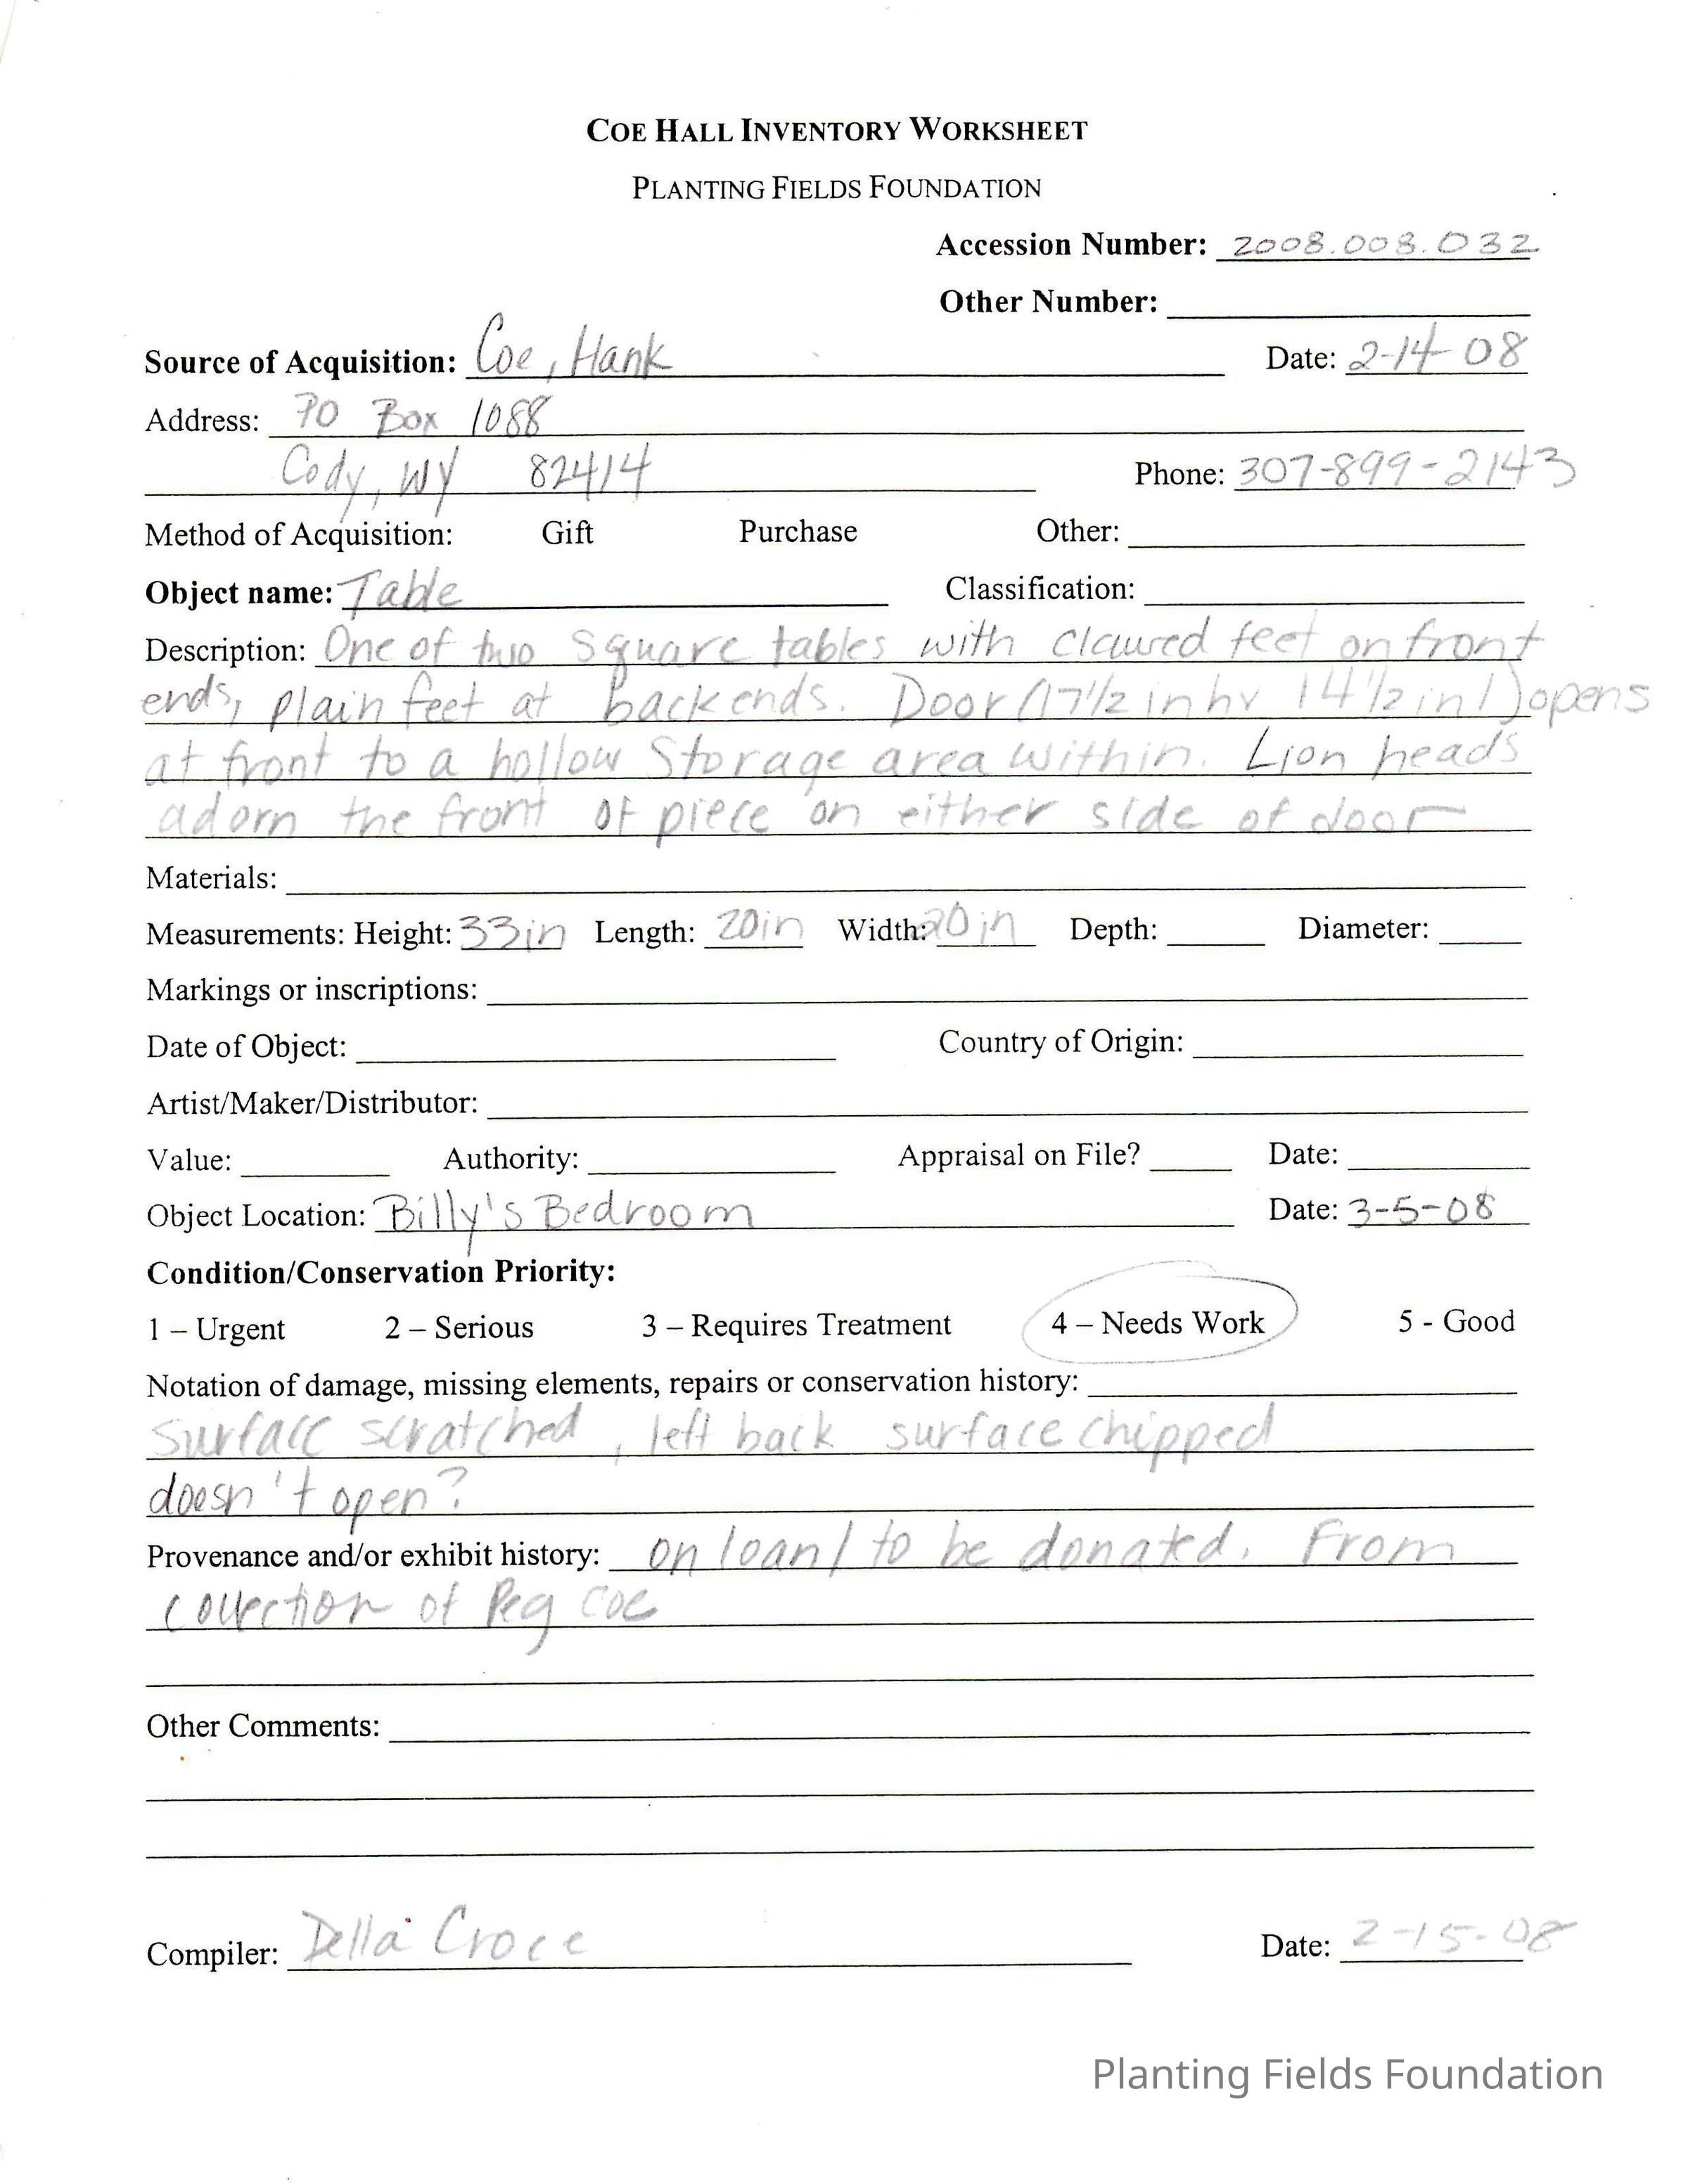 COE HALL INVENTORY WORKSHEET
PLANTING FIELDS FOUNDATION
Accession Number: 2008.008.032
Other Number:
Source of Acquisition: Coe, Hank Date: 2-14-08
Address: PO Box 1088
Cody, WY 82414 Phone: 307-899-2143
Method of Acquisition: Gift Purchase Other:
Object name: Table Classification:
Description: One of two square tables with clawed feet on front
ends, plain feet at back ends. Door (17 1/2 in h v 14 1/2 in l) opens
at front to a hollow storage area within. Lion heads
adorn the front of piece on either side of door
Materials:
Measurements: Height: 33in Length: 20in Width: 20in Depth: Diameter:
Markings or inscriptions:
Date of Object: Country of Origin:
Artist/Maker/Distributor:
Value: Authority: Appraisal on File? Date:
Object Location: Billy's Bedroom Date: 3-5-08
Condition/Conservation Priority:
1 – Urgent 2 – Serious 3 – Requires Treatment 4 – Needs Work 5 - Good
Notation of damage, missing elements, repairs or conservation history:
surface scratched, left back surface chipped
doesn't open?
Provenance and/or exhibit history: on loan / to be donated. From
collection of Peg Coe
Other Comments:
Compiler: Della Croce Date: 2-15-08
Planting Fields Foundation